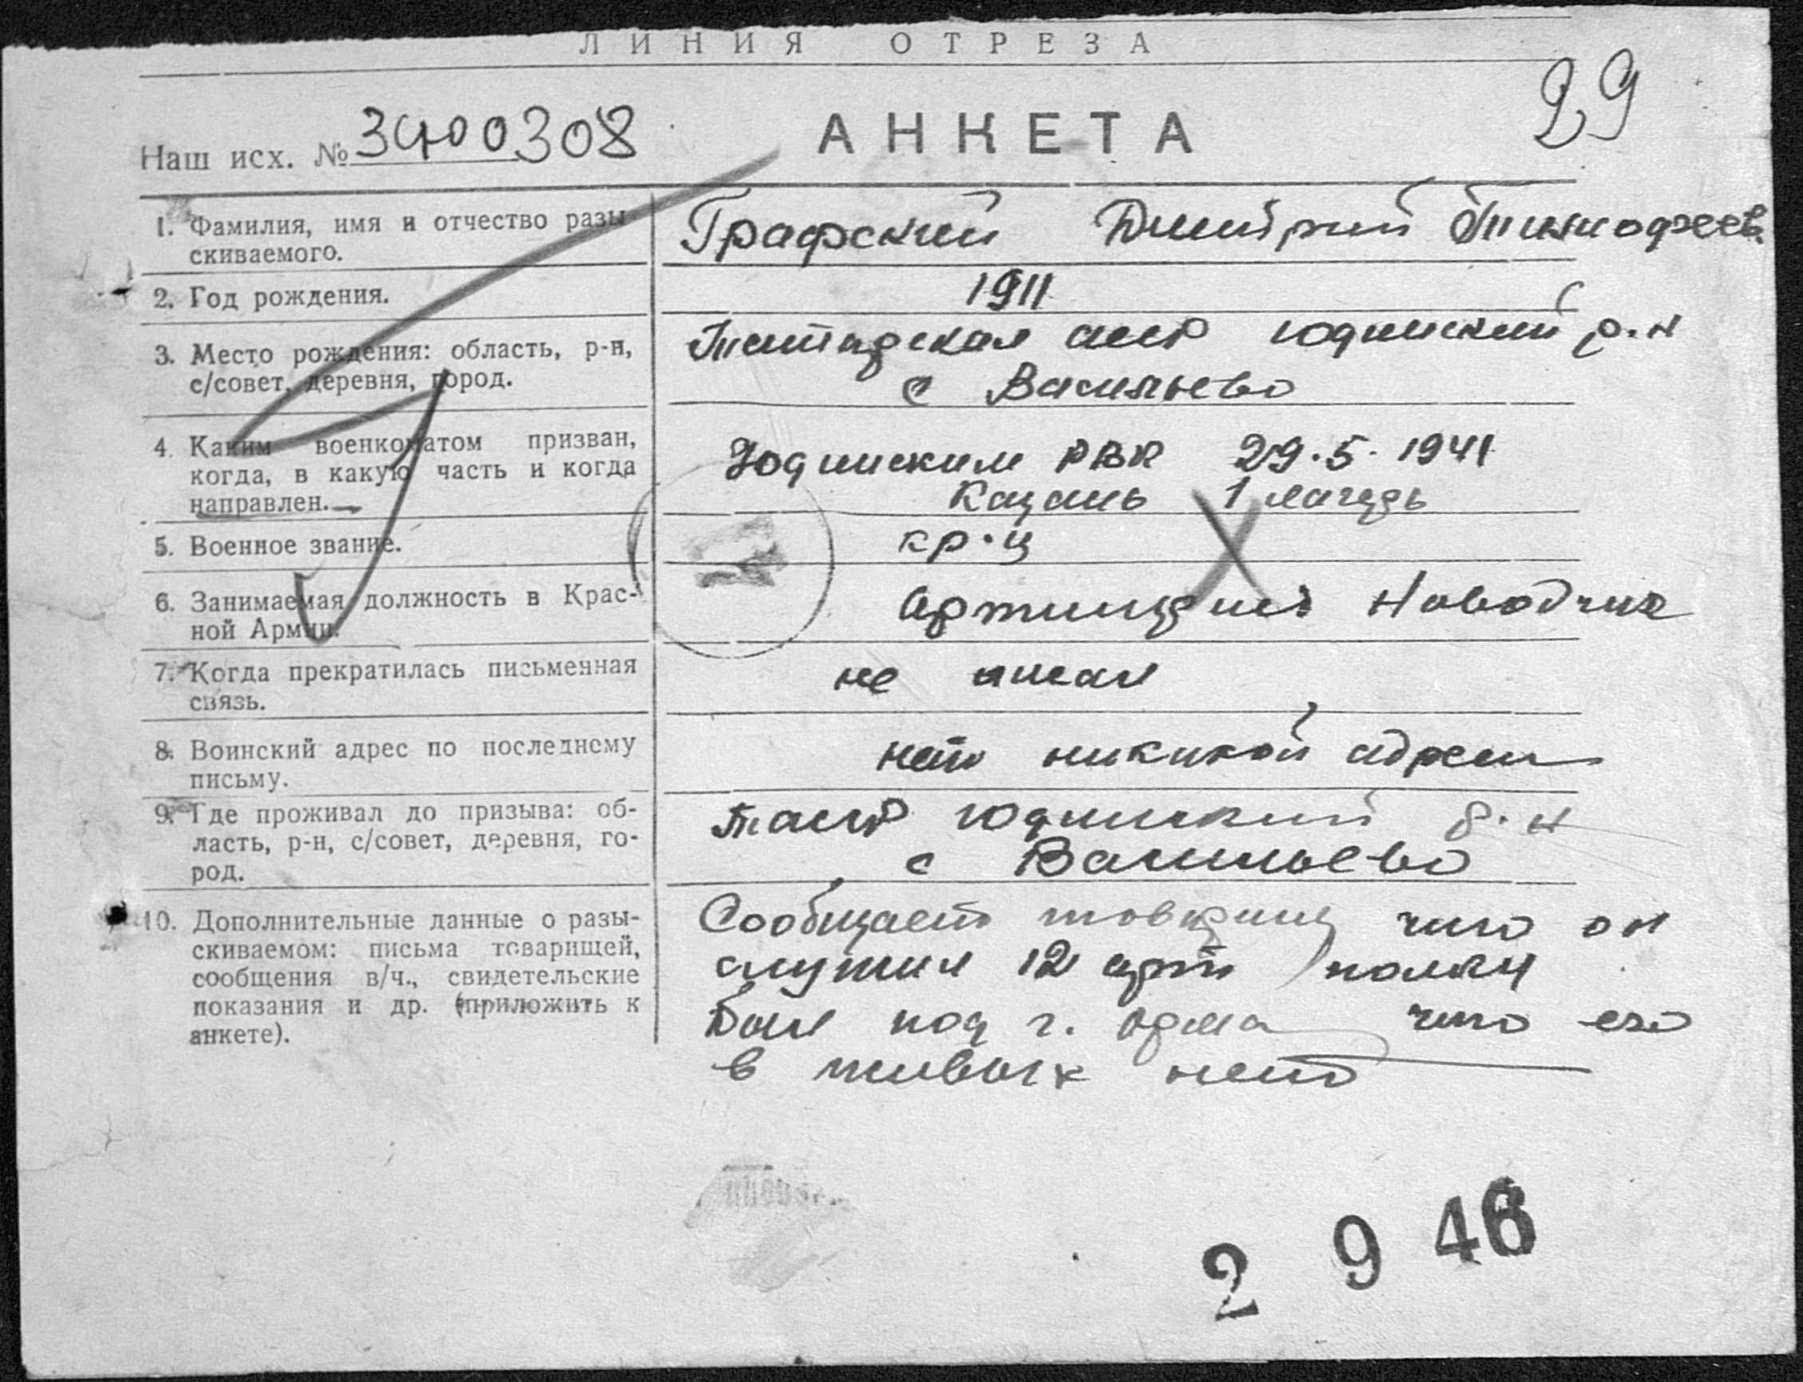 ЛИНИЯ ОТРЕЗА
29
Наш исх. № 3400308
АНКЕТА
1. Фамилия, имя и отчество разы
скиваемого.
Графский Дмитрий Тимофеев.
2. Год рождения.
1911
3. Место рождения: область, р-н,
с/совет, деревня, город.
Татарская асср юдинский р.н
с Васильево
4. Каким военкоматом призван,
когда, в какую часть и когда
направлен.
Юдинским РВК 29.5.1941
Казань 1 лагерь
5. Военное звание.
кр.ц
6. Занимаемая должность в Крас-
ной Армии.
Наводчик
7. Когда прекратилась письменная
связь.
не писал
8. Воинский адрес по последнему
письму.
нето никакой адреса
9. Где проживал до призыва: об-
ласть, р-н, с/совет, деревня, го-
род.
Тасср юдинский р.н
с Васильево
10. Дополнительные данные о разы-
скиваемом: письма товарищей,
сообщения в/ч., свидетельские
показания и др. (приложить к
анкете).
Сообщаето товарищ чито он
служил 12 арт полки
Был под г. чито его
в живых нето
2 9 46